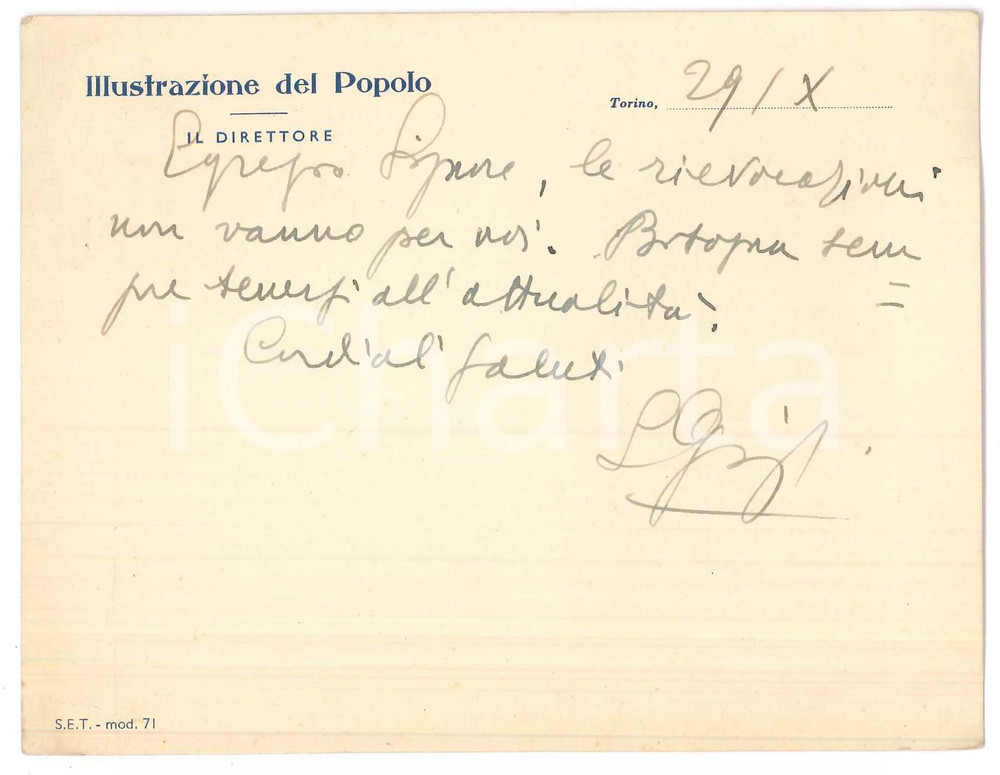 Illustrazione del Popolo
IL DIRETTORE
Torino, 29/X
Egregio Signore, le rievocazioni
non vanno per noi. Bisogna sem
=
pre tenersi all'attualità.
Cordiali saluti
iCharta
S.E.T. - mod. 71